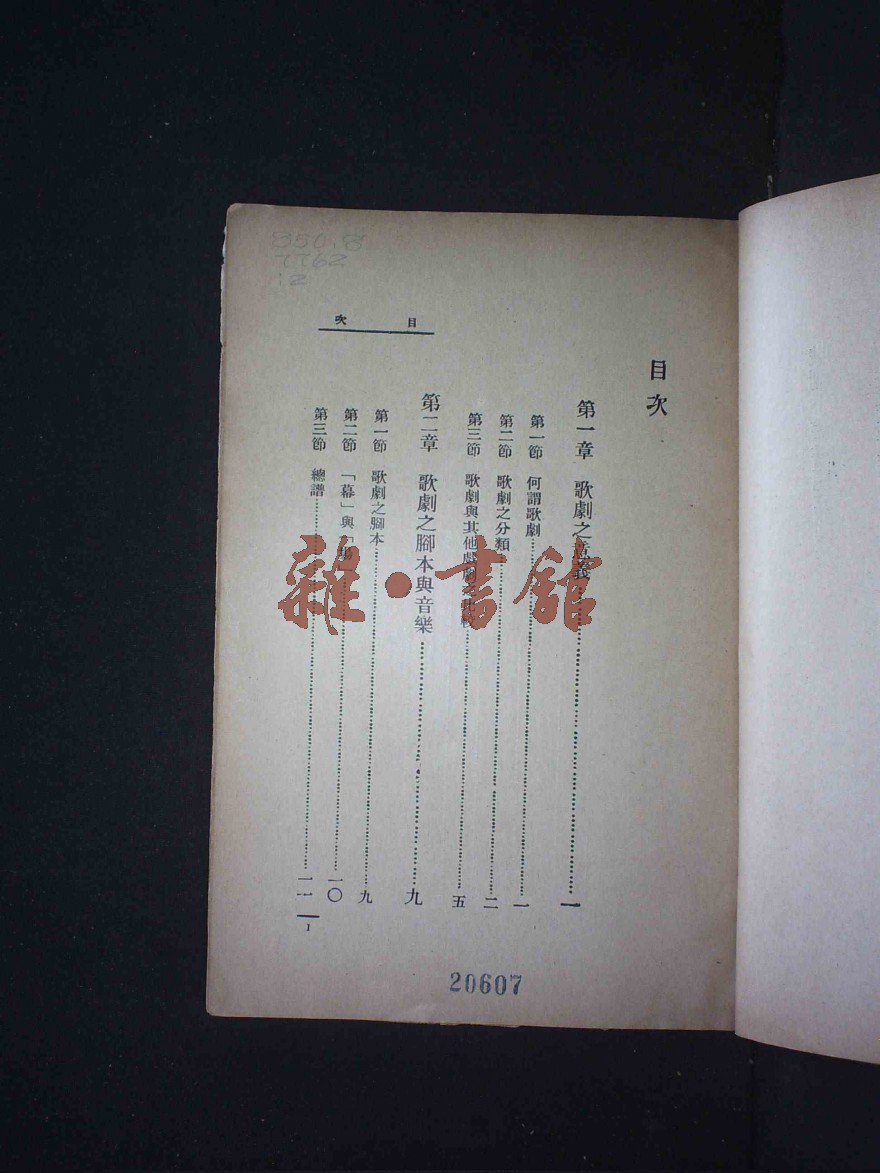 850.8
7762
12
目次
目次
第一章 歌劇之意義 一
第一節 何謂歌劇 一
第二節 歌劇之分類 二
第三節 歌劇與其他戲劇之比較 五
第二章 歌劇之腳本與音樂 九
第一節 歌劇之腳本 九
第二節 「幕」與「 一〇
第三節 總譜 一一
1
20607
雜·書館